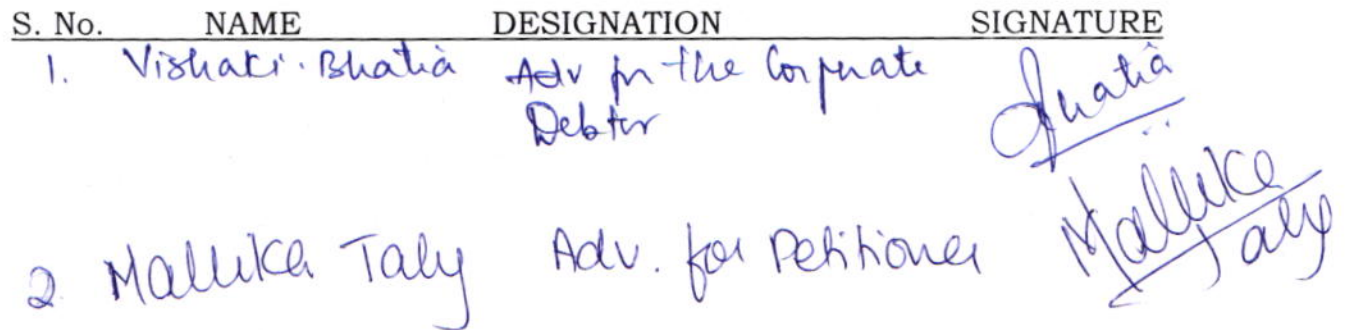 S. No. NAME DESIGNATION SIGNATURE
1. Vishaki. Bhatia Adv for the Corporate Bhatia
Debtor
2 Mallika Taly Adv. for Petitioner Mallika
Taly